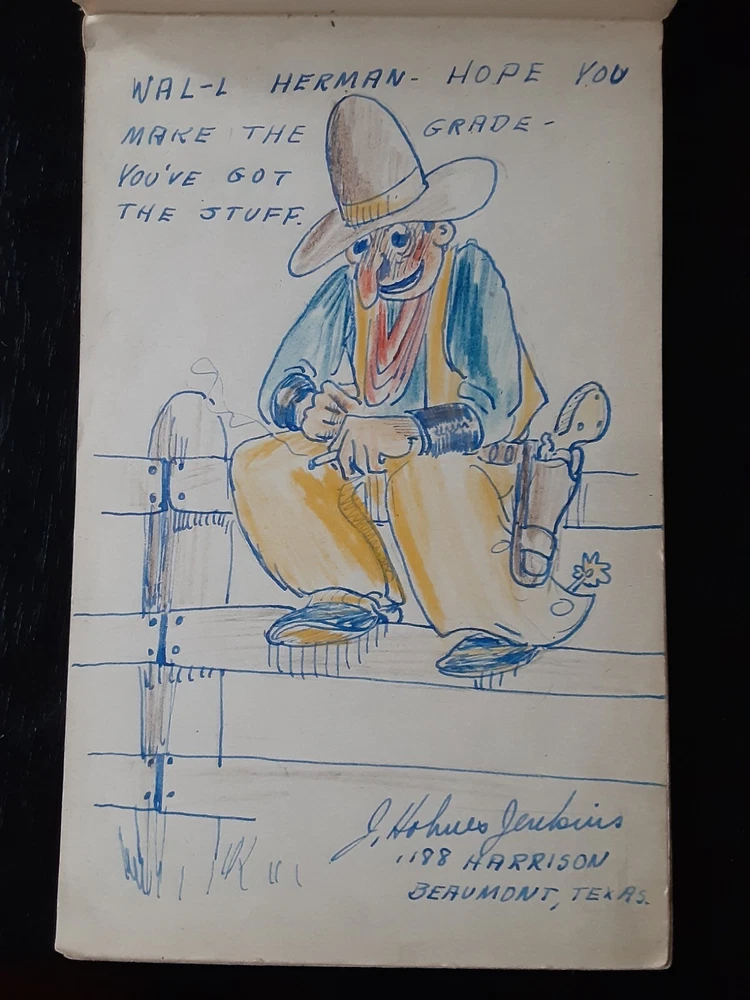 WAL-L HERMAN- HOPE YOU
MAKE THE GRADE-
YOU'VE GOT
THE STUFF.
J. Holmes Jenkins
1188 HARRISON
BEAUMONT, TEXAS.